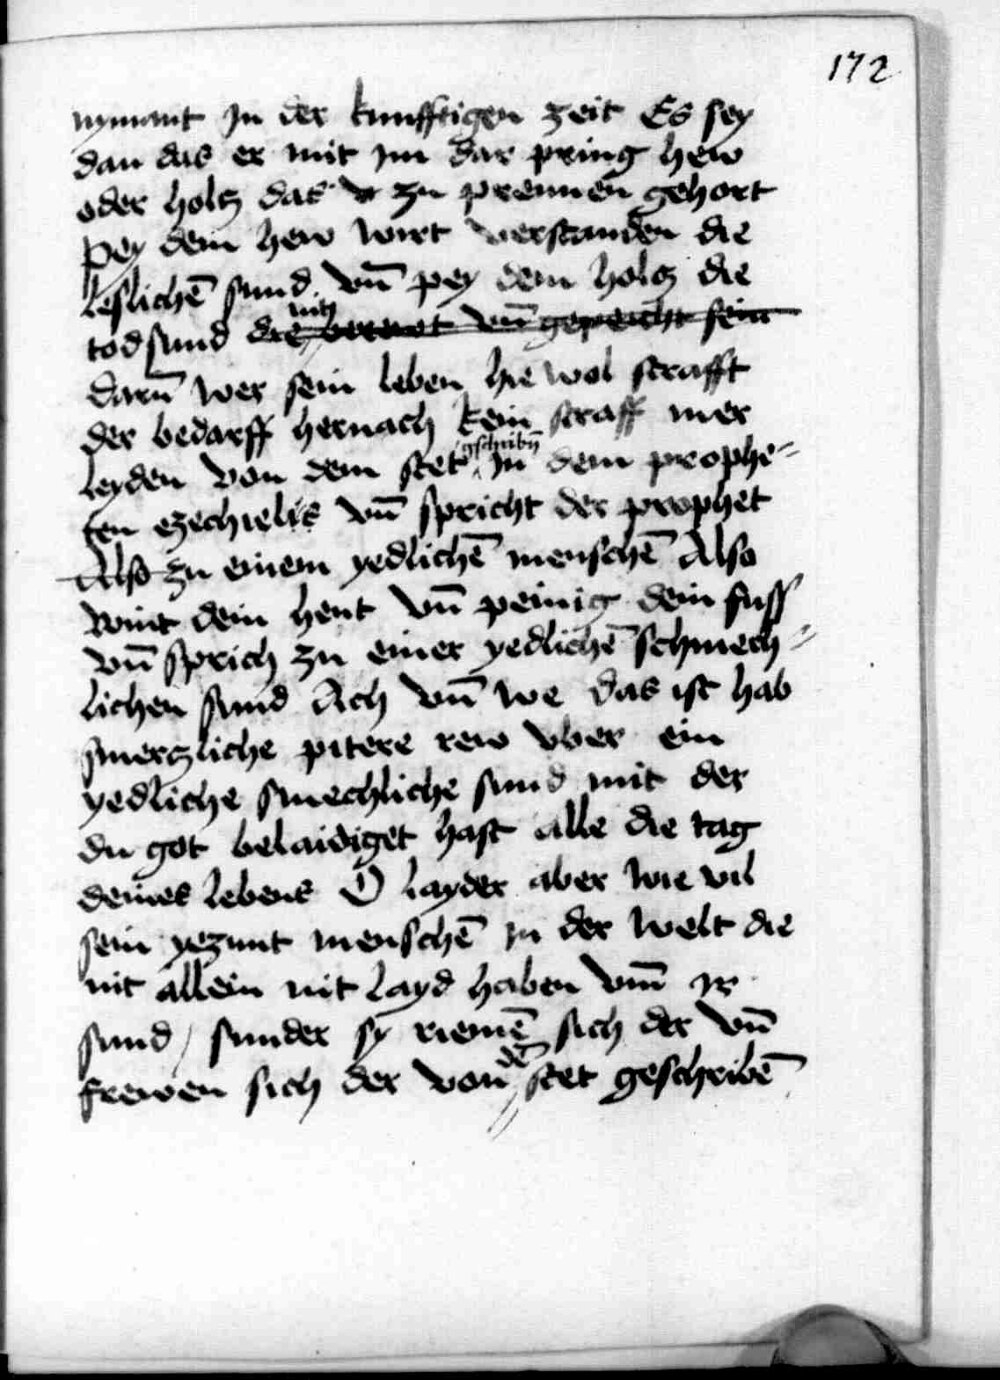 172
nymant jn der kunfftigen zeit Es sey
dan das er mit jm dar pring hew
oder holtz das zu prennen gehort
pey dem hew wirt verstanden die
leslichē sund vn̄ pey dem holtz die
nit
todsund die berewt vn̄ gepeicht sein
darū wer sein leben hie wol strafft
der bedarff hernach kein straff mer
geschribn̄
leyden von dem stet jn dem prophe⸗
ten ezechielis vn̄ spricht der prophet
Also zu einem yedlichē menschē Also
wint dein hent vn̄ peinig dein fuss
vn̄ sprich zu einer yedlichē schmech⸗
lichen sund Ach vn̄ we das ist hab
smerzliche pitere rew vber ein
yedliche smechliche sund mit der
du got belaidiget hast alle die tag
deines lebens O layder aber wie vil
sein yezunt menschē jn der welt die
nit allein nit layd haben vm̄ jr
sund / sunder sy riemē sich der vn̄
dē
frewen sich der von stet geschribē